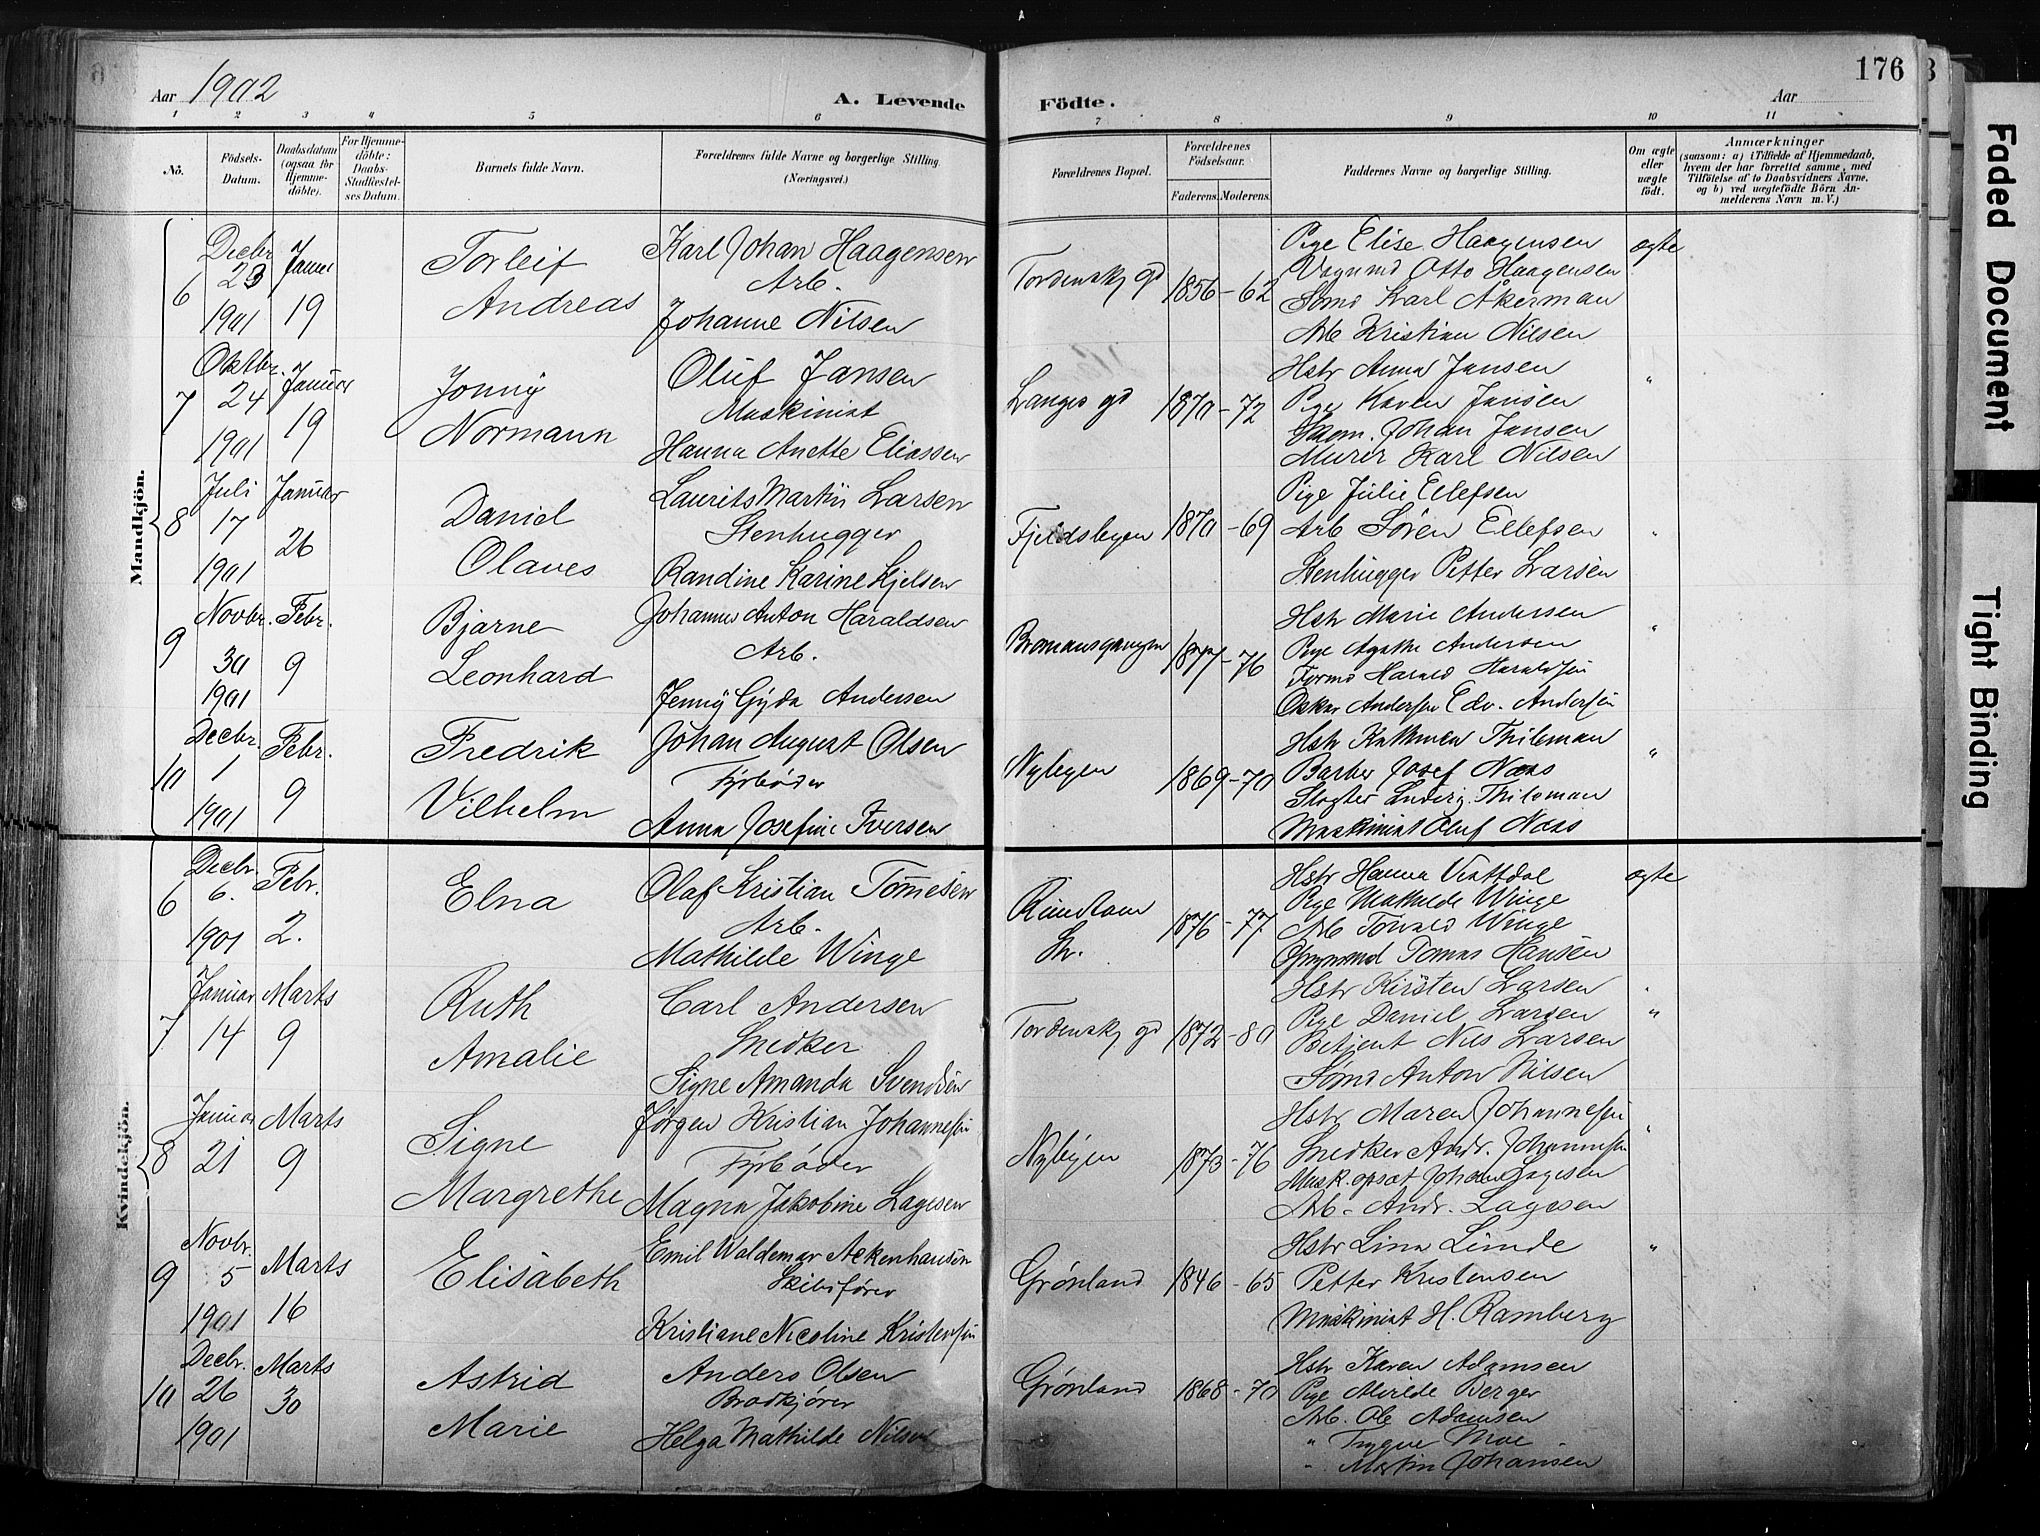 Aar 1902
A. Levende Födte.
Aar
176
1 2 3 4 5 6 7 8 9 10 11
No.
Födsels-Datum.
Daabsdatum (ogsaa för Hjemme-döbte).
For Hjemme-döbte: Daabs-Stadfæstel-ses Datum.
Barnets fulde Navn.
Forældrenes fulde Navne og borgerlige Stilling. (Næringsvei.)
Forældrenes Bopæl.
Forældrenes Födselsaar.
Faderens. Moderens.
Faddernes Navne og borgerlige Stilling.
Om ægte eller uægte født.
Anmærkninger
(saasom: a) i Tilfælde af Hjemmedaab, hvem der har forrettet samme, med Tilföielse af to Daabsvidners Navne, og b) ved uægtefödte Börn An-melderens Navn m. V.)
Mandkjön.
6 Decbr 23 1901 Januar 19
Torleif Andreas
Karl Johan Haagensen
Arb.
Johanne Nilsen
Tordensk gd 1856-62
Pige Elise Haagensen
Vognmd Otto Haagensen
Sømd Karl Åkerman
Arb Kristian Nilsen
ægte
7 Oktbr. 24 1901 Januar 19
Jonny Normann
Oluf Jansen
Maskinist
Hanna Anette Eliassen
Langes gd 1870-72
Hstr Anna Jansen
Pige Karen Jansen
Johan Jansen
Murer Karl Nilsen
"
8 Juli 17 1901 Januar 26
Daniel Olaves
Laurits Martin Larsen
Stenhugger
Randine Karine Kjelsen
Fjeldsbyen 1870-69
Pige Julie Ellefsen
Arb Søren Ellefsen
Stenhugger Petter Larsen
"
9 Novbr. 30 1901 Febr. 9
Bjarne Leonhard
Johannes Anton Haraldsen
Arb.
Jenny Gyda Andersen
Bromansgangen 1877-76
Hstr Marie Andersen
Pige Agathe Andersen
Formd Harald Haraldsen
Oskar Andersen Edv. Andersen
"
10 Decbr. 1 1901 Febr. 9
Fredrik Vilhelm
Johan August Olsen
Fyrbøder
Anna Josefine Iversen
Nybyen 1869-70
Hstr Kathinca Thileman
Barber Josef Næss
Slagter Ludvig Thileman
Maskinist Oluf Næss
"
Kvindekjön.
6 Decbr. 6. 1901 Febr. 2.
Elna
Olaf Kristian Tomesen
Arb.
Mathilde Winge
Rundtom Str. 1876-77
Hstr Hanna Viattdal
Pige Mathilde Winge
Arb Torvald Winge
Tomas Hansen
ægte
7 Januar 14 Marts 9
Ruth Amalie
Carl Andersen
Snedker
Signe Amanda Svendsen
Tordensk gd 1872-80
Hstr Kirsten Larsen
Pige Daniel Larsen
Betjent Nils Larsen
Sømd Anton Nilsen
"
8 Januar 21 Marts 9
Signe Margrethe
Jørgen Kristian Johannesen
Fyrbøder
Magna Jakobine Lagesen
Nybyen 1873-76
Hstr Maren Johannesen
Snedker Andr. Johannesen
Mask.opsat Johan Lagesen
Arb. Andr. Lagesen
"
9 Novbr. 5 1901 Marts 16
Elisabeth
Emil Waldemar Ackenhausen
Skibsfører
Kristiane Nicoline Kristensen
Grønland 1846-65
Hstr Lina Lunde
Petter Kristensen
Maskinist H. Ramberg
"
10 Decbr. 26 1901 Marts 30
Astrid Marie
Anders Olsen
Brødkjører
Helga Mathilde Nilsen
Grønland 1868-70
Hstr Karen Adamsen
Pige Murilde Berger
Arb. Ole Adamsen
" Trygve Moe
" Martin Johansen
Faded Document
Tight Binding